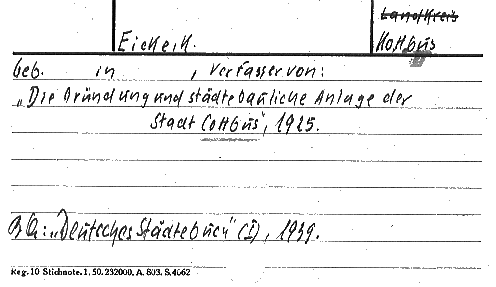 Landkreis
Eichert. Kottbus
geb. in , Verfasser von:
„Die Gründung und städtebauliche Anlage der
Stadt Cottbus", 1925.
„Deutsches Städtebuch" (I), 1939.
Reg. 10 Stichnote. 1, 50. 232000. A. 803. S. 4662